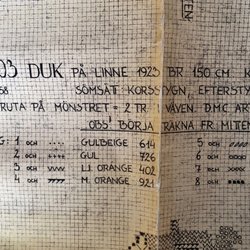 TEN
03 DUK PÅ LINNE 1923 BR 150 CM
58 SÖMSÄTT KORSSTYGN, EFTERSTY
RUTA PÅ MÖNSTRET = 2 TR I VÄVEN D.M.C. AR
OBS! BÖRJA RÄKNA FR. MITEN
G: 1 OCH GULBEIGE 614 5 OCH
2 OCH GUL 726 6 OCH
3 OCH LJ. ORANGE 402 7 OCH
4 OCH M. ORANGE 921 8 OCH